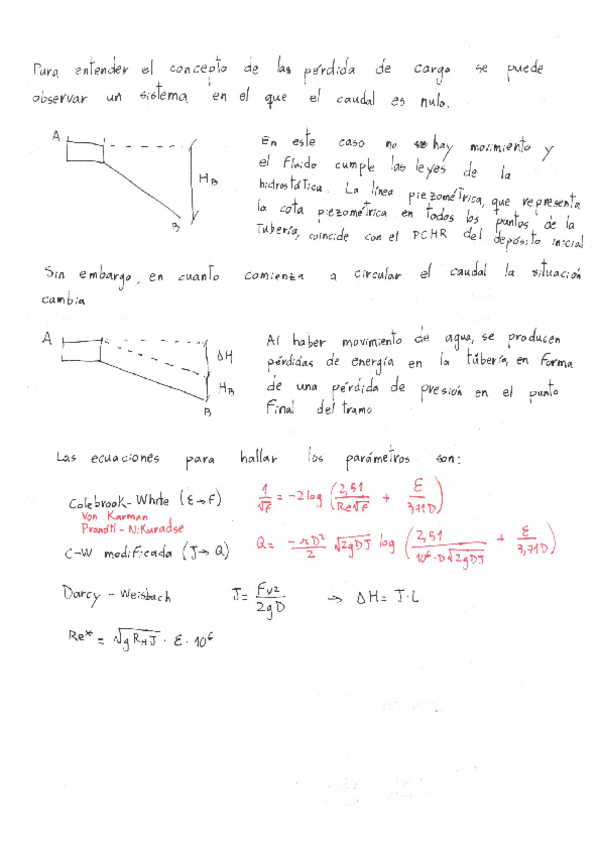 Para entender el concepto de las pérdida de carga se puede
observar un sistema en el que el caudal es nulo.
A
H_B
B
En este caso no se hay movimiento y
el fluido cumple las leyes de la
hidrostática. La línea piezométrica, que representa
la cota piezométrica en todos los puntos de la
tubería, coincide con el PCHR del depósito inicial
Sin embargo, en cuanto comienza a circular el caudal la situación
cambia
A
ΔH
H_B
B
Al haber movimiento de agua, se producen
pérdidas de energía en la túbería, en forma
de una pérdida de presión en el punto
final del tramo
Las ecuaciones para hallar los parámetros son:
Colebrook-White (ε→f) 1/√f = -2log(2,51/Re√f + ε/3,71D)
Von Karman
Prandtl-Nikuradse
C-W modificada (J→Q) Q = -πD²/2 √2gDJ log(2,51/10⁶·D√2gDJ + ε/3,71D)
Darcy-Weisbach J = fv²/2gD → ΔH = J·L
Re* = √gR_HJ · ε · 10⁶